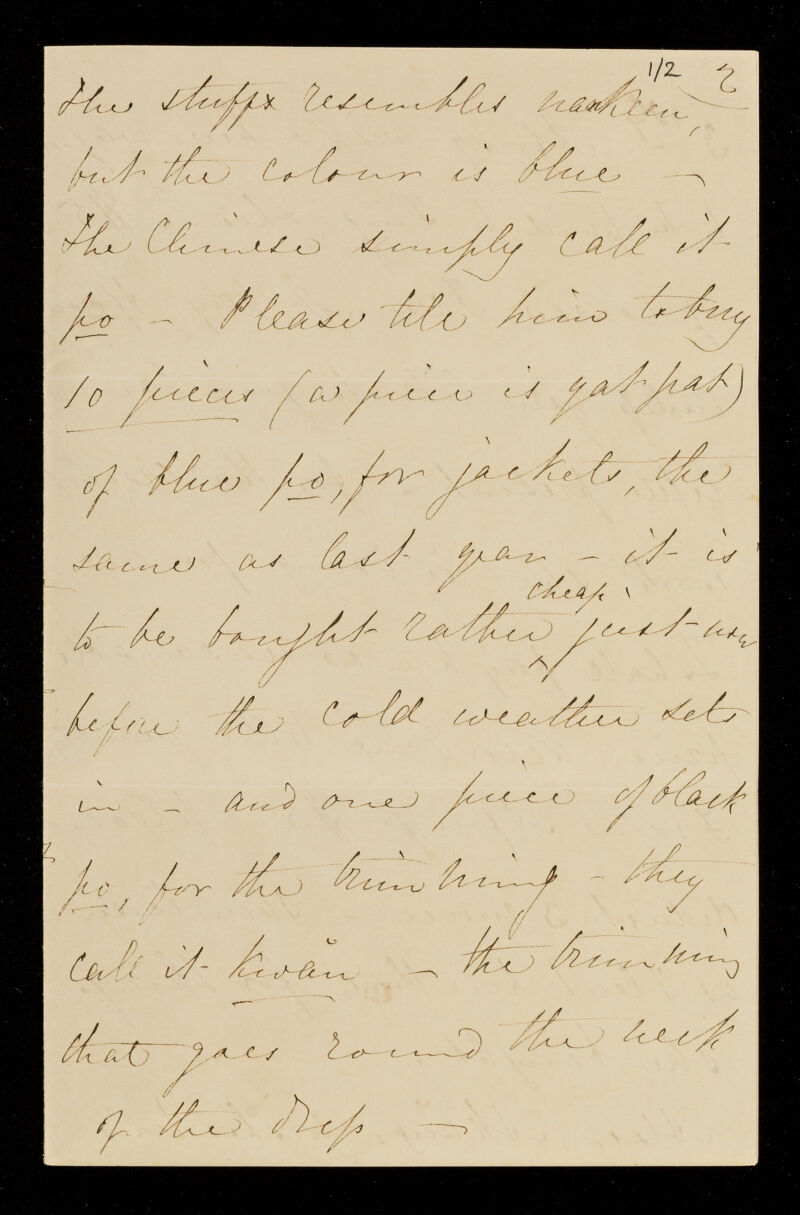 1/2 2
The stuff resembles nankeen,
but the colour is blue —
The Chinese simply call it
po — Please tell him to buy
10 pieces (a piece is yat pat)
of blue po, for jackets, the
same as last year — it is
cheap
to be bought rather just now
before the cold weather sets
in — and one piece of black
po, for the trimming — they
call it Kwan — the trimming
that goes round the neck
of the dress —